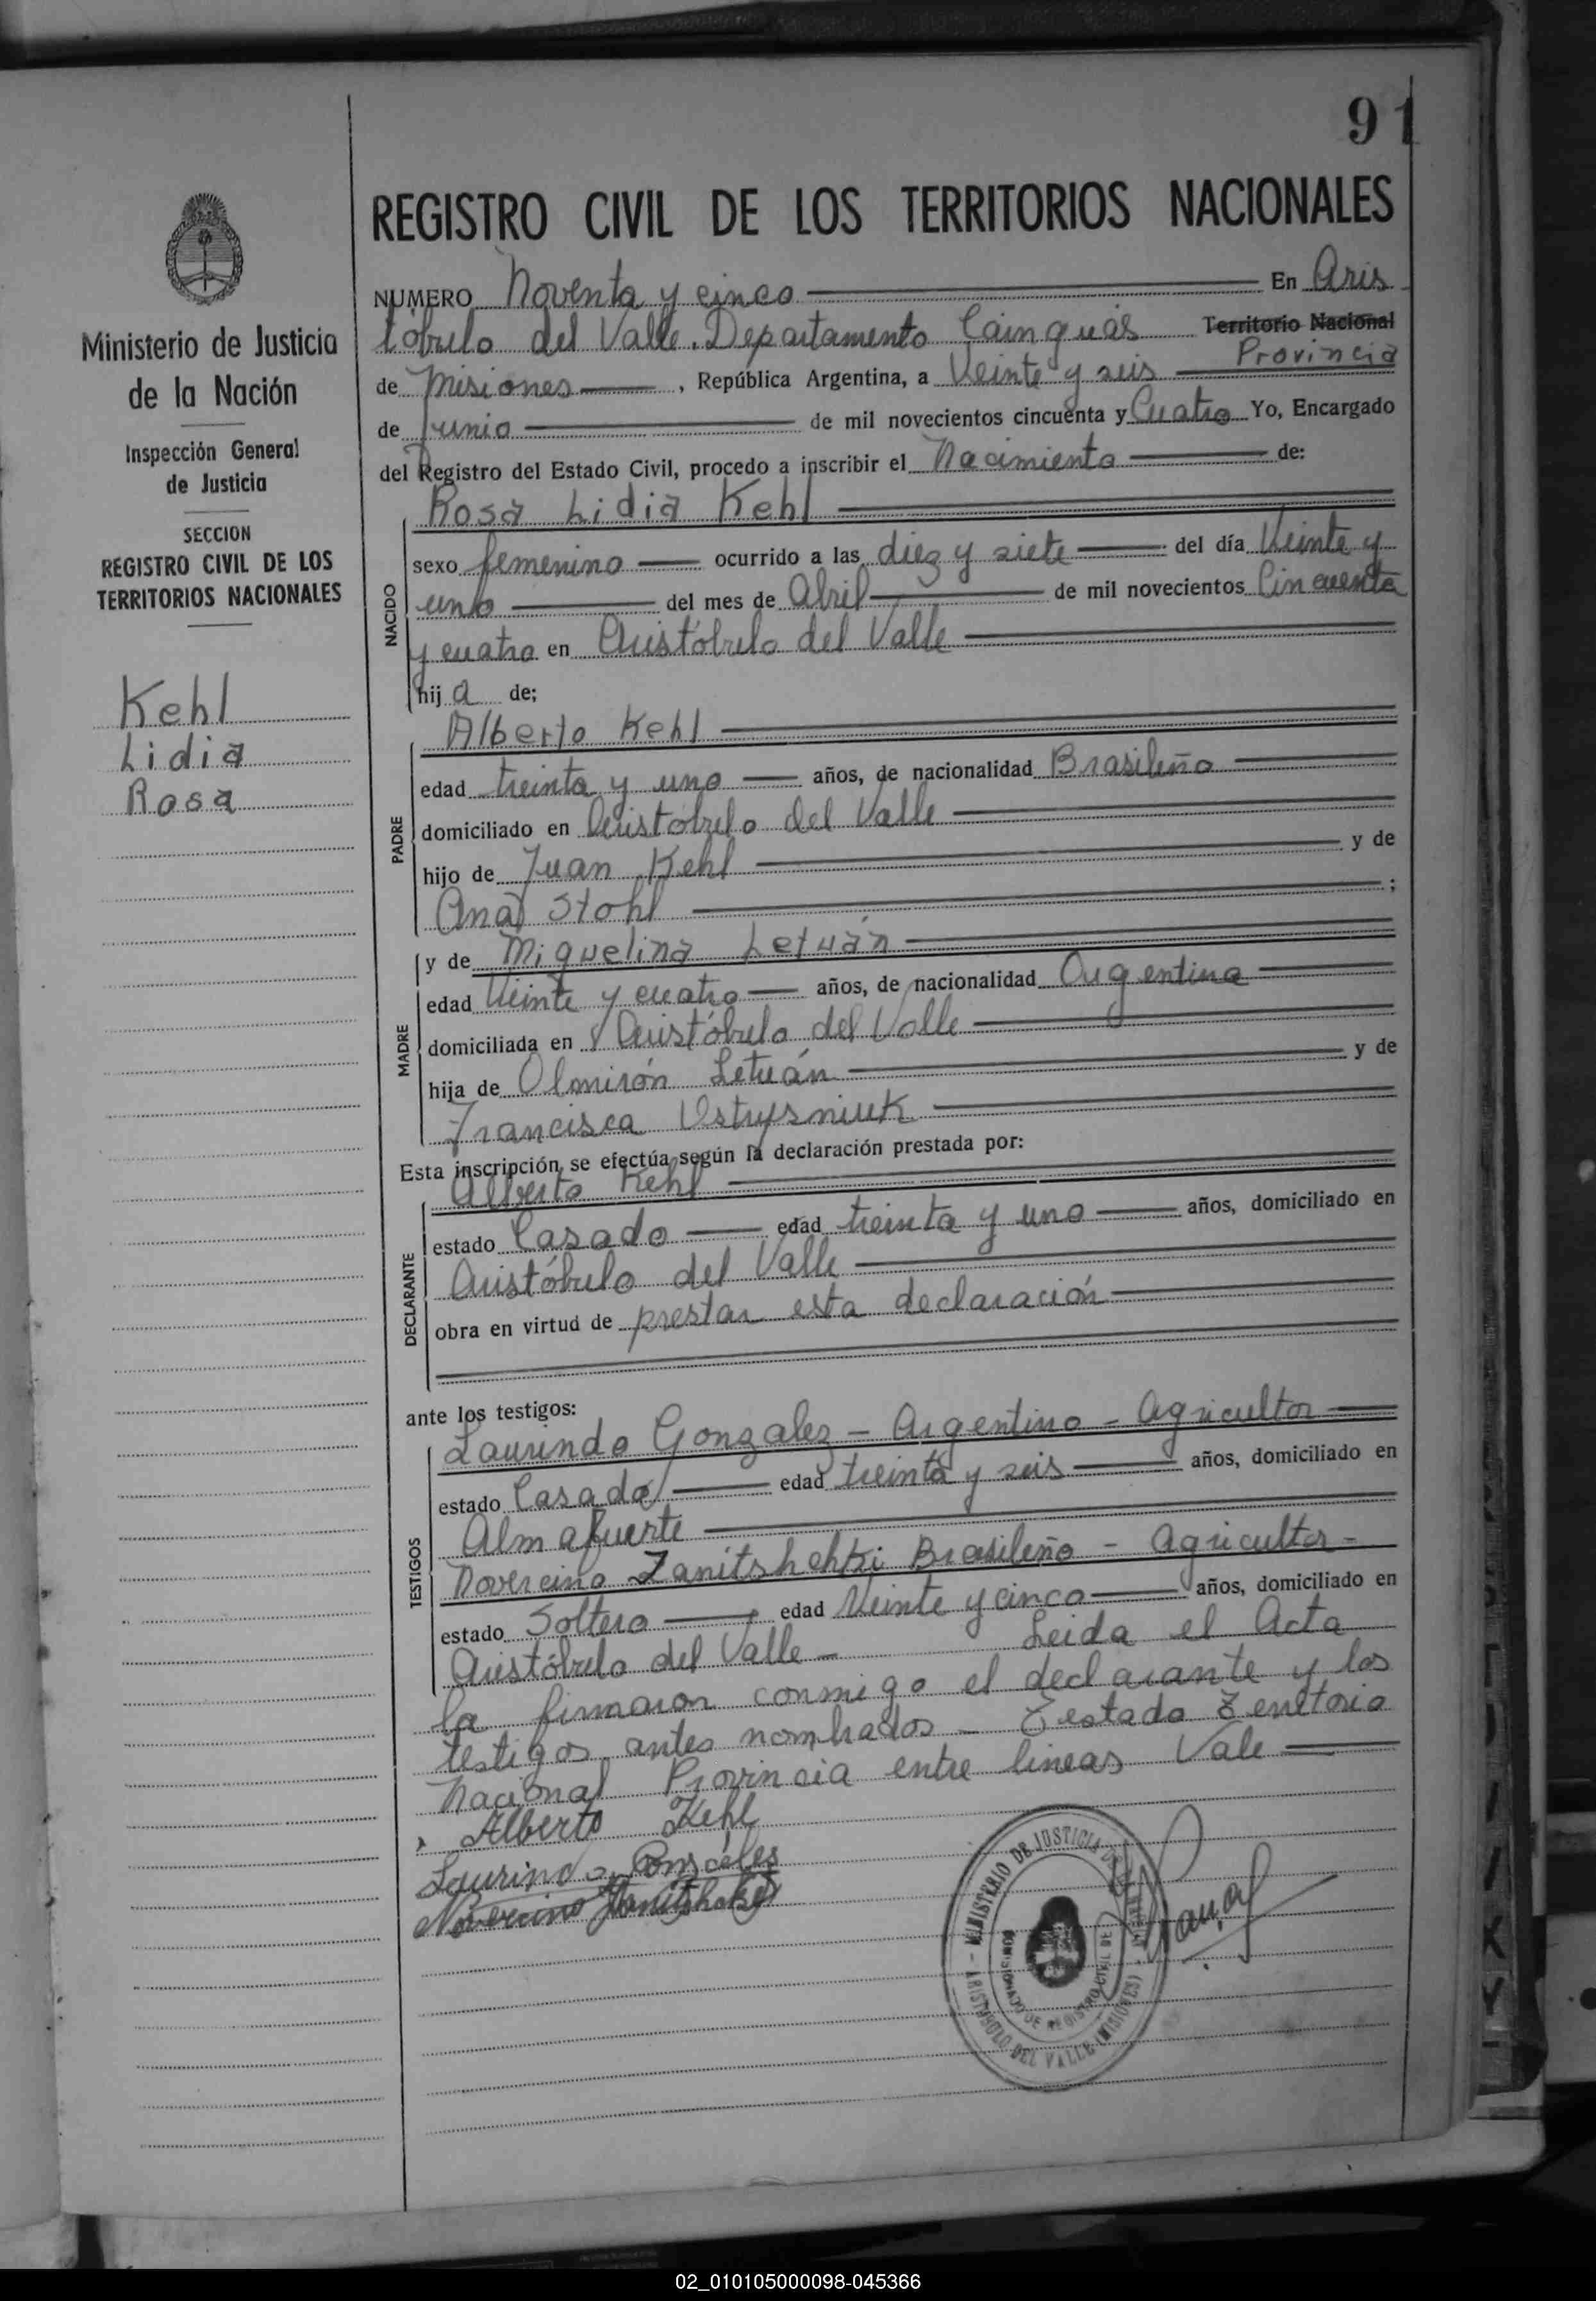 91
REGISTRO CIVIL DE LOS TERRITORIOS NACIONALES
Ministerio de Justicia
de la Nación
Inspección General
de Justicia
SECCION
REGISTRO CIVIL DE LOS
TERRITORIOS NACIONALES
Kehl
Lidia
Rosa
NUMERO Noventa y cinco En Aris
tóbulo del Valle. Departamento Cainguás Territorio Nacional
Provincia
de Misiones, República Argentina, a Veinte y seis
de Junio de mil novecientos cincuenta y Cuatro Yo, Encargado
del Registro del Estado Civil, procedo a inscribir el Nacimiento de:
NACIDO
Rosa Lidia Kehl
sexo femenino ocurrido a las diez y siete del día Veinte y
uno del mes de Abril de mil novecientos Cincuenta
y cuatro en Aristóbulo del Valle
hija de;
PADRE
Alberto Kehl
edad treinta y uno años, de nacionalidad Brasileño
domiciliado en Aristóbulo del Valle
hijo de Juan Kehl y de
Ana Stohl ;
MADRE
y de Miguelina Letuán
edad Veinte y cuatro años, de nacionalidad Argentina
domiciliada en Aristóbulo del Valle
hija de Olmirón Letuán y de
Francisca Ustrysniuk
Esta inscripción se efectúa según la declaración prestada por:
DECLARANTE
Alberto Kehl
estado Casado edad treinta y uno años, domiciliado en
Aristóbulo del Valle
obra en virtud de prestar esta declaración
ante los testigos:
TESTIGOS
Laurindo Gonzalez - Argentino - Agricultor
estado Casado edad treinta y seis años, domiciliado en
Almafuerte
Novercino Zanitshehki Brasileño - Agricultor -
estado Soltero edad Veinte y cinco años, domiciliado en
Aristóbulo del Valle - Leida el Acta
la firmaron conmigo el declarante y los
testigos antes nombrados - Testado Territorio
Nacional Provincia entre lineas Vale
Alberto Kehl
Laurindo Gonzáles
Novercino
MINISTERIO DE JUSTICIA
REGISTRO CIVIL
ARISTOBULO DEL VALLE (MISIONES)
02_010105000098-045366